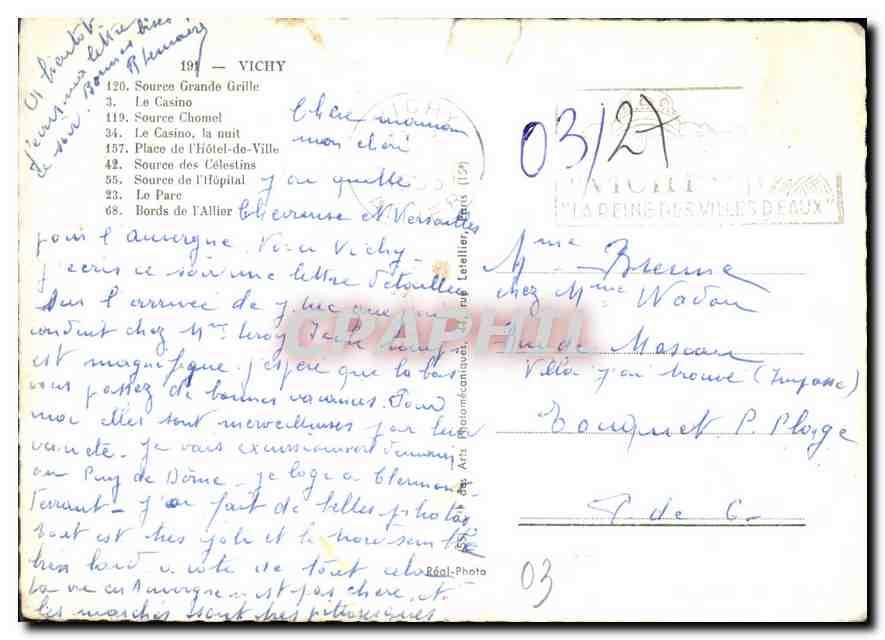 A bientôt
j'écris ma lettre
ce soir. Bonnes bises
191 — VICHY
120. Source Grande Grille
3. Le Casino
119. Source Chomel
34. Le Casino, la nuit
157. Place de l'Hôtel-de-Ville
42. Source des Célestins
55. Source de l'Hôpital
23. Le Parc
68. Bords de l'Allier
Chère maman
mon chéri
j'ai quitté
Chevreuse et Versailles
pour l'Auvergne. Voici Vichy.
j'écris ce soir une lettre détaillée
sur l'arrivée de que j'ai
conduit chez Mme Leroy Le temps
est magnifique j'espère que là bas
vous passez de bonnes vacances. Pour
moi elles sont merveilleuses par leur
variété. Je vais excursionner demain
au Puy de Dôme. je loge à Clermont
Ferrant. J'ai fait de belles photos
tout est très joli et le nord semble
bien laid à côté de tout cela.
La vie en Auvergne est pas chère et
les marchés sont très pittoresques.
des Arts Photomécaniques, rue Letellier, Paris (15e)
Réal-Photo
VICHY
"LA REINE DES VILLES D'EAUX"
03/27
Mme
chez Mme
rue de
Villa j'ai trouvé (Impasse)
Touquet P. Plage
P. de C.
03
CPAPHIL